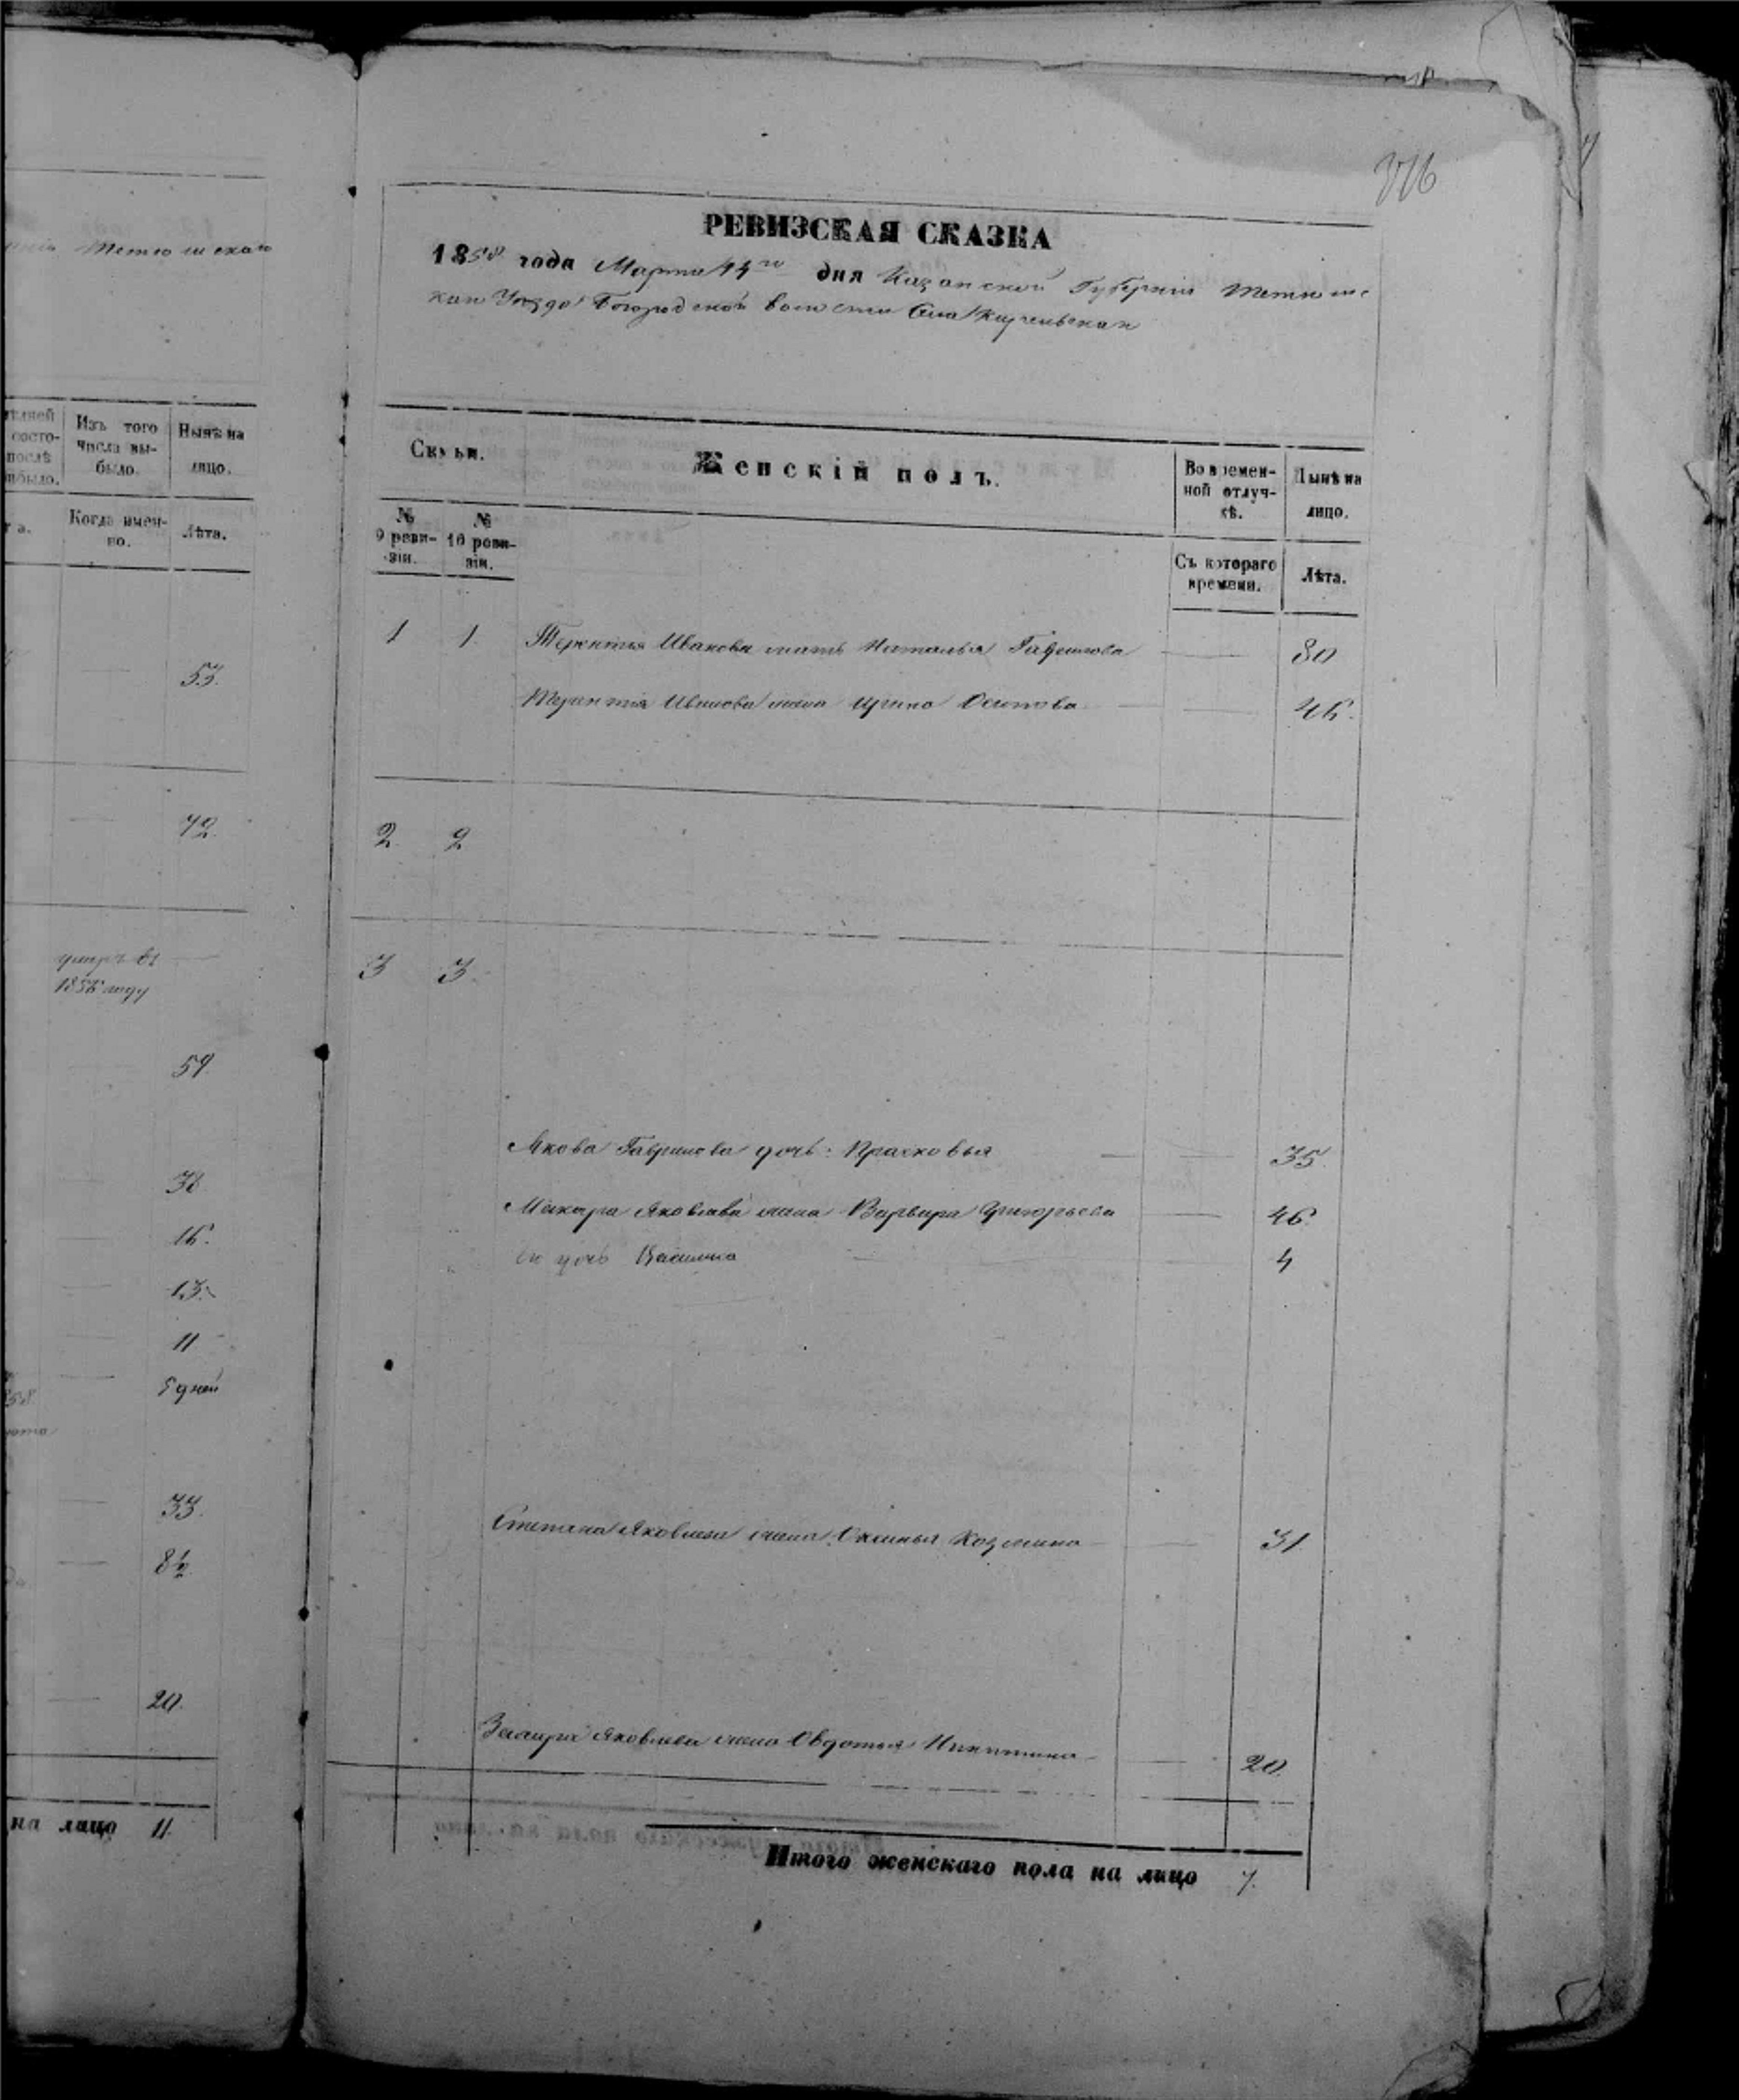 Тетюшскаго
Изъ того числа выбыло.
Нынѣ на лицо.
Когда именно.
Лѣта.
53.
72.
умеръ въ
1856 году
59.
36
16.
13.
11
5 дней
33.
8½
20.
на лицо 11.
376
РЕВИЗСКАЯ СКАЗКА
1858 года Марта дня Казанской Губерніи Тетюшс
кан Уѣзда Богородской волости Села
Семьи.
Женскій полъ.
Во временной отлучкѣ.
Нынѣ на лицо.
№ 9 ревизіи.
№ 10 ревизіи.
Съ котораго времени.
Лѣта.
1 1. Терентья Иванова мать Наталья Гаврилова 80
Терентія Иванова жена Ирина Осипова 46.
2. 2
3 3.
Якова Гаврилова дочь: Прасковья 35.
Макара Яковлева жена Варвара Григорьева 46.
его дочь Василиса 4
Степана Яковлева жена Оксинья Козмина 31.
Яковлева жена Овдотья Никитина 20.
Итого женскаго пола на лицо 7.